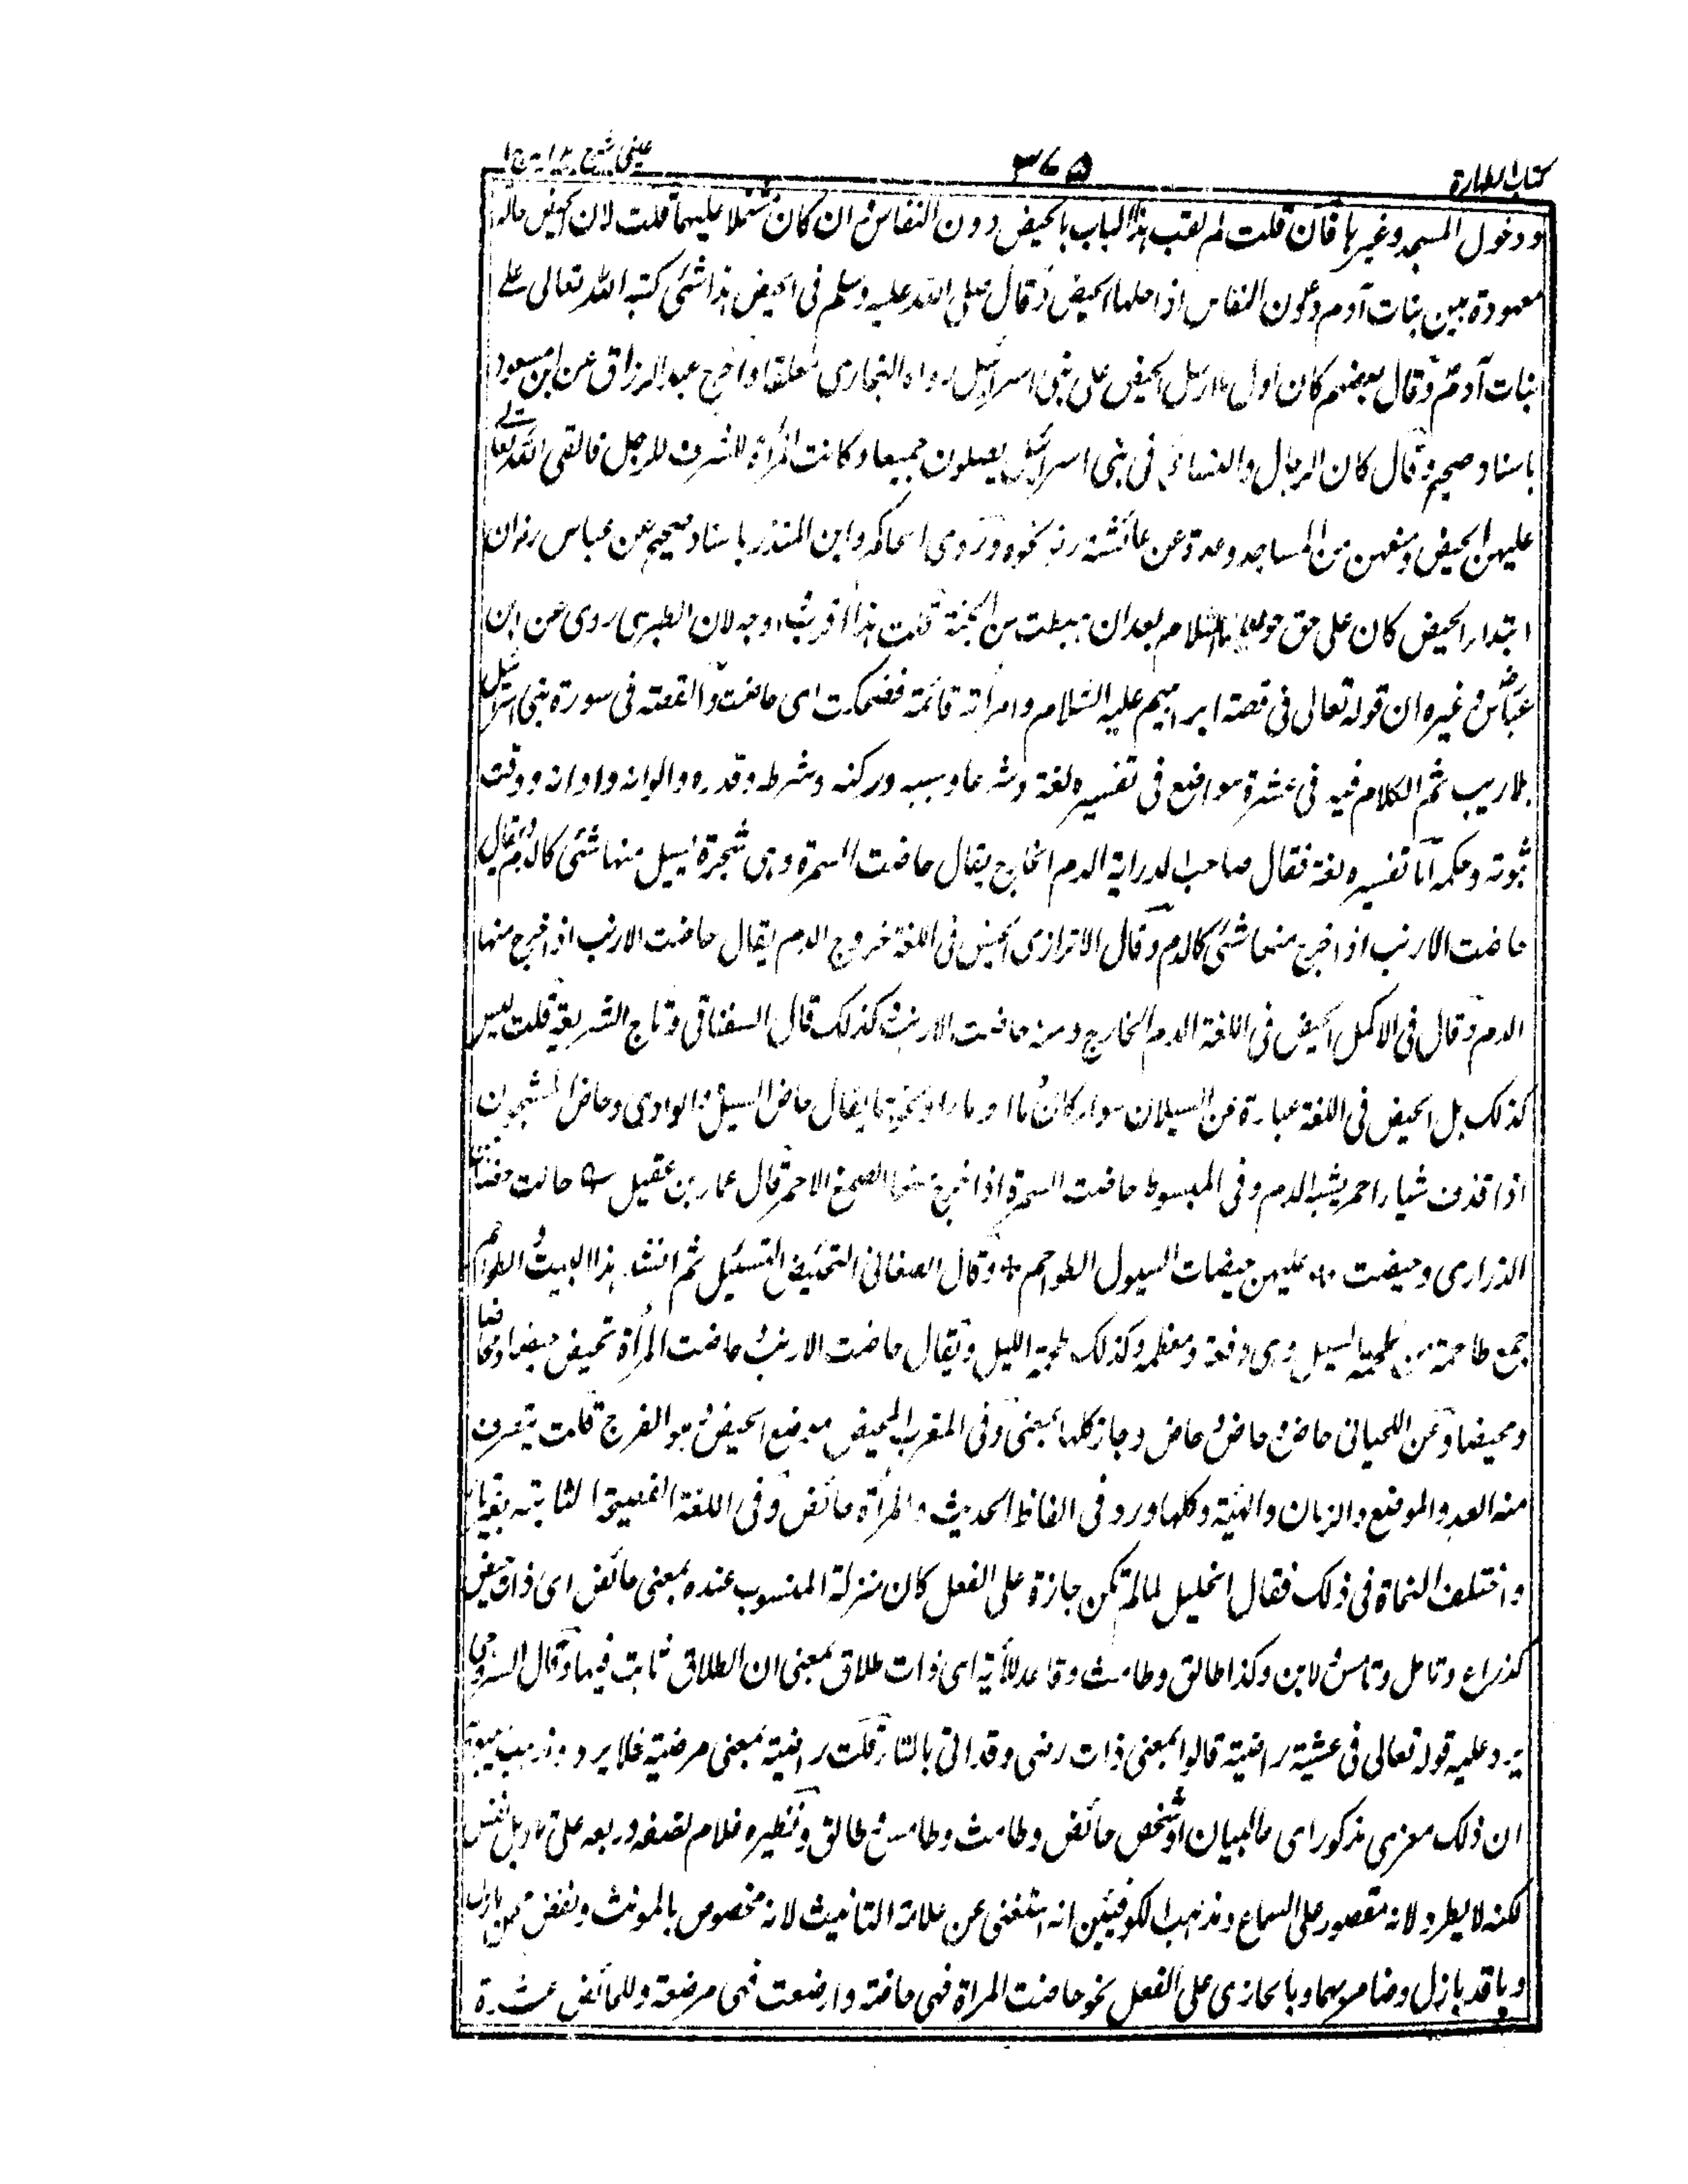 كتاب الطهارة
٣٦٥
عينى شرح هداية ج ا
ودخول المسجد وغيرها فان قلت لم لقب هذا الباب بالحيض دون النفاس وان كان مشتملا عليهما قلت لان الحيض حالة
معهودة بين بنات آدم دون النفاس اذ اصلها الحيض وقال صلى الله عليه وسلم فى الحيض هذا شئ كتبه الله تعالى على
بنات آدم وقال بعضهم كان اول ما ارسل الحيض على بنى اسرائيل رواه البخارى معلقا واخرج عبد الرزاق عن ابن مسعود
باسناد صحيح وقال كان الرجال والنساء فى بنى اسرائيل يصلون جميعا وكانت المرأة تتشرف للرجل فالقى الله تعالى
عليهن الحيض ومنعهن من المساجد وعدة عن عائشة رض نحوه وروى الحاكم وابن المنذر باسناد صحيح عن عباس رض ان
ابتداء الحيض كان على حق حوا عليها السلام بعد ان هبطت من الجنة قلت هذا اقرب وجه لان الطبرى روى عن ابن
عباس وغيره ان قوله تعالى فى قصة ابراهيم عليه السلام وامرأته قائمة فضحكت اى حاضت والقصة فى سورة بنى اسرائيل
بلا ريب ثم الكلام فيه فى عشرة مواضع فى تفسيره لغة وشرعا وسببه وركنه وشرطه وقدره والوانه واوانه ووقت
ثبوته وحكمه اما تفسيره لغة فقال صاحب الدراية الدم الخارج يقال حاضت السمرة وهى شجرة يسيل منها شئ كالدم ويقال
حاضت الارنب اذا خرج منها شئ كالدم وقال الاترازى الحيض فى اللغة خروج الدم يقال حاضت الارنب اذا خرج منها
الدم وقال فى الاكمل الحيض فى اللغة الدم الخارج ومنه حاضت الارنب كذلك قال السغناقى وتاج الشريعة قلت ليس
كذلك بل الحيض فى اللغة عبارة عن السيلان سواء كان دما او ماء او نحوهما يقال حاض السيل والوادى وحاض الشجرن
اذا قذف شيا راحمر يشبه الدم وفى المبسوط حاضت السمرة اذا خرج منها الصمغ الاحمر قال عمار بن عقيل حالت حصنا
الذرارى وحيضت عليهن حيضات السيول الطواحم وقال الصغانى التحييض التسييل ثم انشد هذا البيت والطواحم
جمع طاحمة من طحمة السيل وهى دفعة ومعظمه وكذلك طحمة الليل ويقال حاضت الارنب وحاضت المرأة تحيض حيضا ومحاضا
ومحيضا وعن اللحيانى حاض وحاض وحاض وجاز كلها بمعنى وفى المغرب المحيض موضع الحيض وهو الفرج قلت يتصرف
منه المصدر والموضع والزمان والهيئة وكلها ورد فى الفاظ الحديث والمرأة حائض وفى اللغة الفصيحة الثابتة بغير تاء
واختلف النحاة فى ذلك فقال الخليل لما لم تكن جازة على الفعل كان بمنزلة المنسوب عنده بمعنى حائض اى ذات حيض
كذراع وتامل وتامس ولابن وكذا طالق وطامث وقاعد للآية اى ذات طلاق بمعنى ان الطلاق ثابت فيها وقال السروجى
يرد عليه قوله تعالى فى عيشة راضية قالوا بمعنى ذات رضى وقد اتى بالتاء قلت راضية بمعنى مرضية فلا يرد وذهب سيبويه
ان ذلك معزى مذكور اى مالبيان او شخص حائض وطامث وطامس وطالق ونظيره غلام لصفه وربعه على تاويل نفس
لكنه لا يطرد لانه مقصور على السماع ومذهب الكوفيين انه استغنى عن علامة التانيث لانه مخصوص بالمونث ونقض بجمل بازل
وناقة بازل وضامر بهما وبالجارى على الفعل نحو حاضت المرأة فهى حائضة وارضعت فهى مرضعة وللحائض عشرة